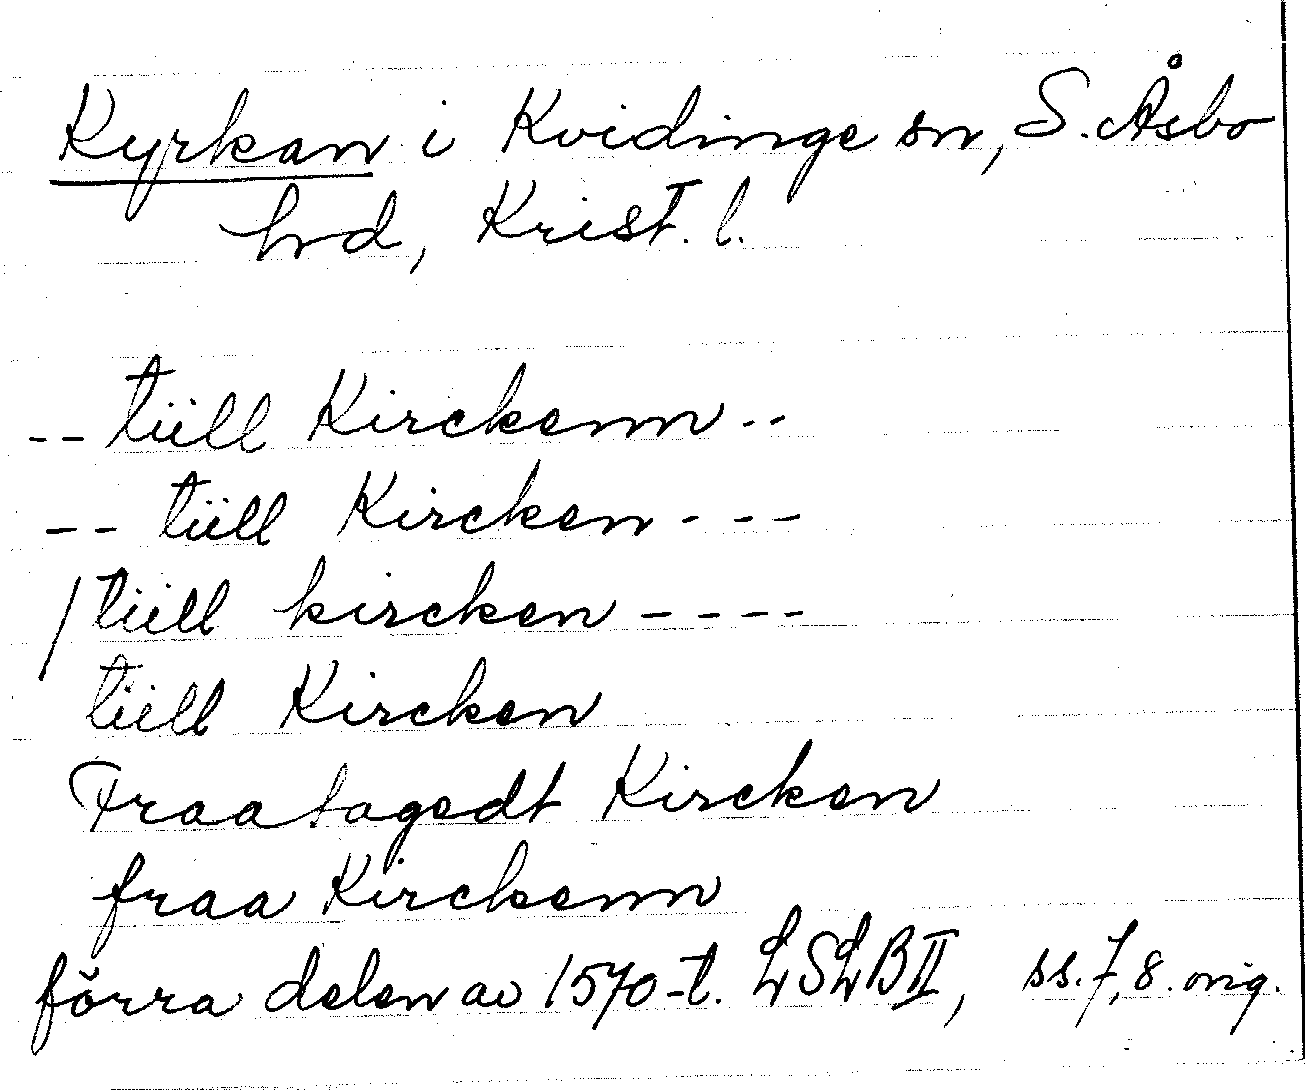 Kyrkan i Kvidinge sn, S. Åsbo
hrd, Krist. l.
-- tüll Kirckenn --
-- tüll Kircken ---
/ tüll kircken ----
tüll Kircken
Fraatagedt Kircken
fraa Kirckenn
förra delen av 1570-t. LSLB II, ss. 7, 8. orig.